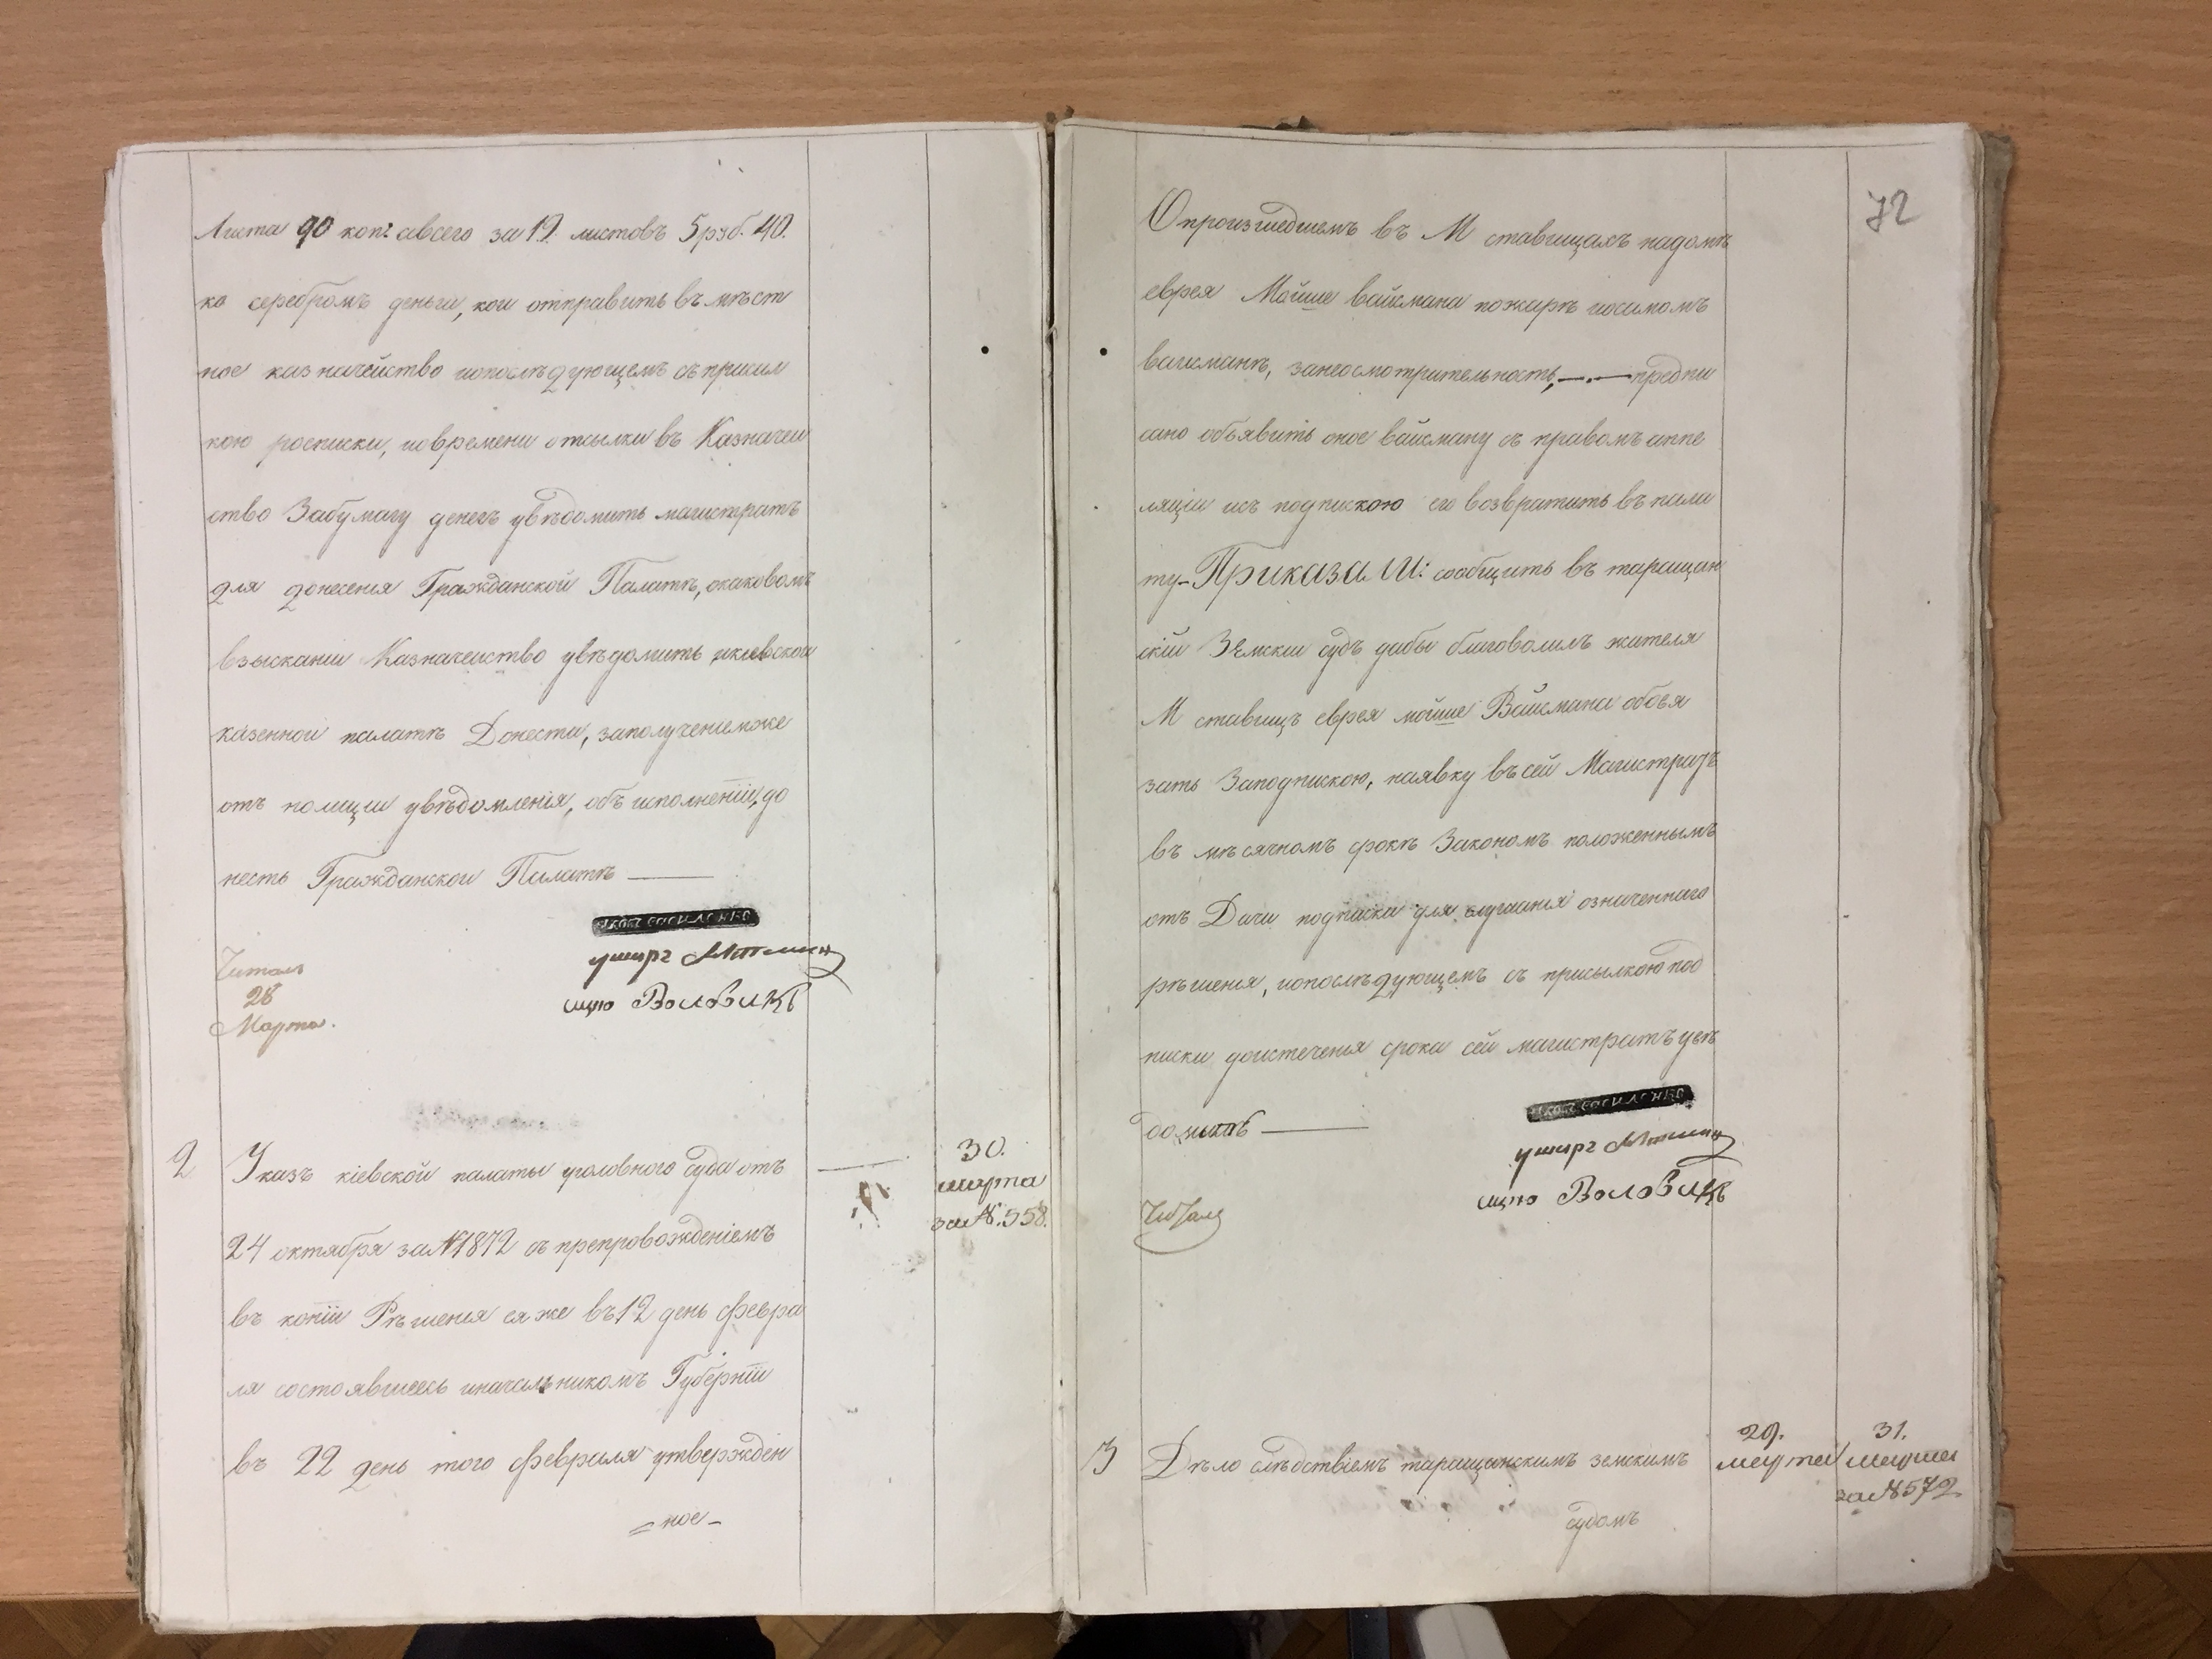 листа 90 коп. авсего за 12. листовъ 5 руб. 40.
ко серебромъ деньги, кои отправить въ мѣст
ное казначейство ипослѣдующемъ съ присил
кою росписки, иовремени отсылки въ Казначеи
ство Забумагу денегъ увѣдомить магистратъ
для донесения Гражданской Палатѣ, окаковомъ
взыскании Казначеиство увѣдомить, икиевской
казенной палатѣ Донести, заполучениемже
отъ полиции увѣдомления, объ исполненіи, до
несть Гражданской Палатѣ —
Читалъ
28
Марта.
ицко Воловикъ
2 Указъ кіевской палаты уголовного суда отъ
24 октября за №1872 съ препровожденіемъ
въ копіи Рѣшения ея же въ 12 день февра
ля состоявшеесь иначальникомъ Губерніи
въ 22 день того февраля утвержден
= ное –
30.
марта
за №. 558.
72
Опроизшедшемъ въ М ставищахъ надомѣ
еврея Мойше вайсмана пожарѣ исамомъ
вайсманѣ, занеосмотрительность, —.— предпи
сано объявить оное вайсману съ правомъ аппе
ляціи исъ подпискою его возвратить въ пала
ту – Приказали: сообщить въ таращан
скій Земскии судъ дабы благоволилъ жителя
М ставищъ еврея мойше Вайсмана обвя
зать Заподпискою, наявку въ сей Магистратъ
въ мѣсячномъ срокѣ Закономъ положеннымъ
отъ Дачи подписки для слушания означеннаго
рѣшения, ипослѣдующемъ съ присылкою под
писки доистечения срока сей магистратъ увѣ
домить —
ицко Воловикъ
Читалъ
3 Дѣло слѣдствіемъ таращанскимъ земскимъ
судомъ
29.
марта
31.
марта
за №572